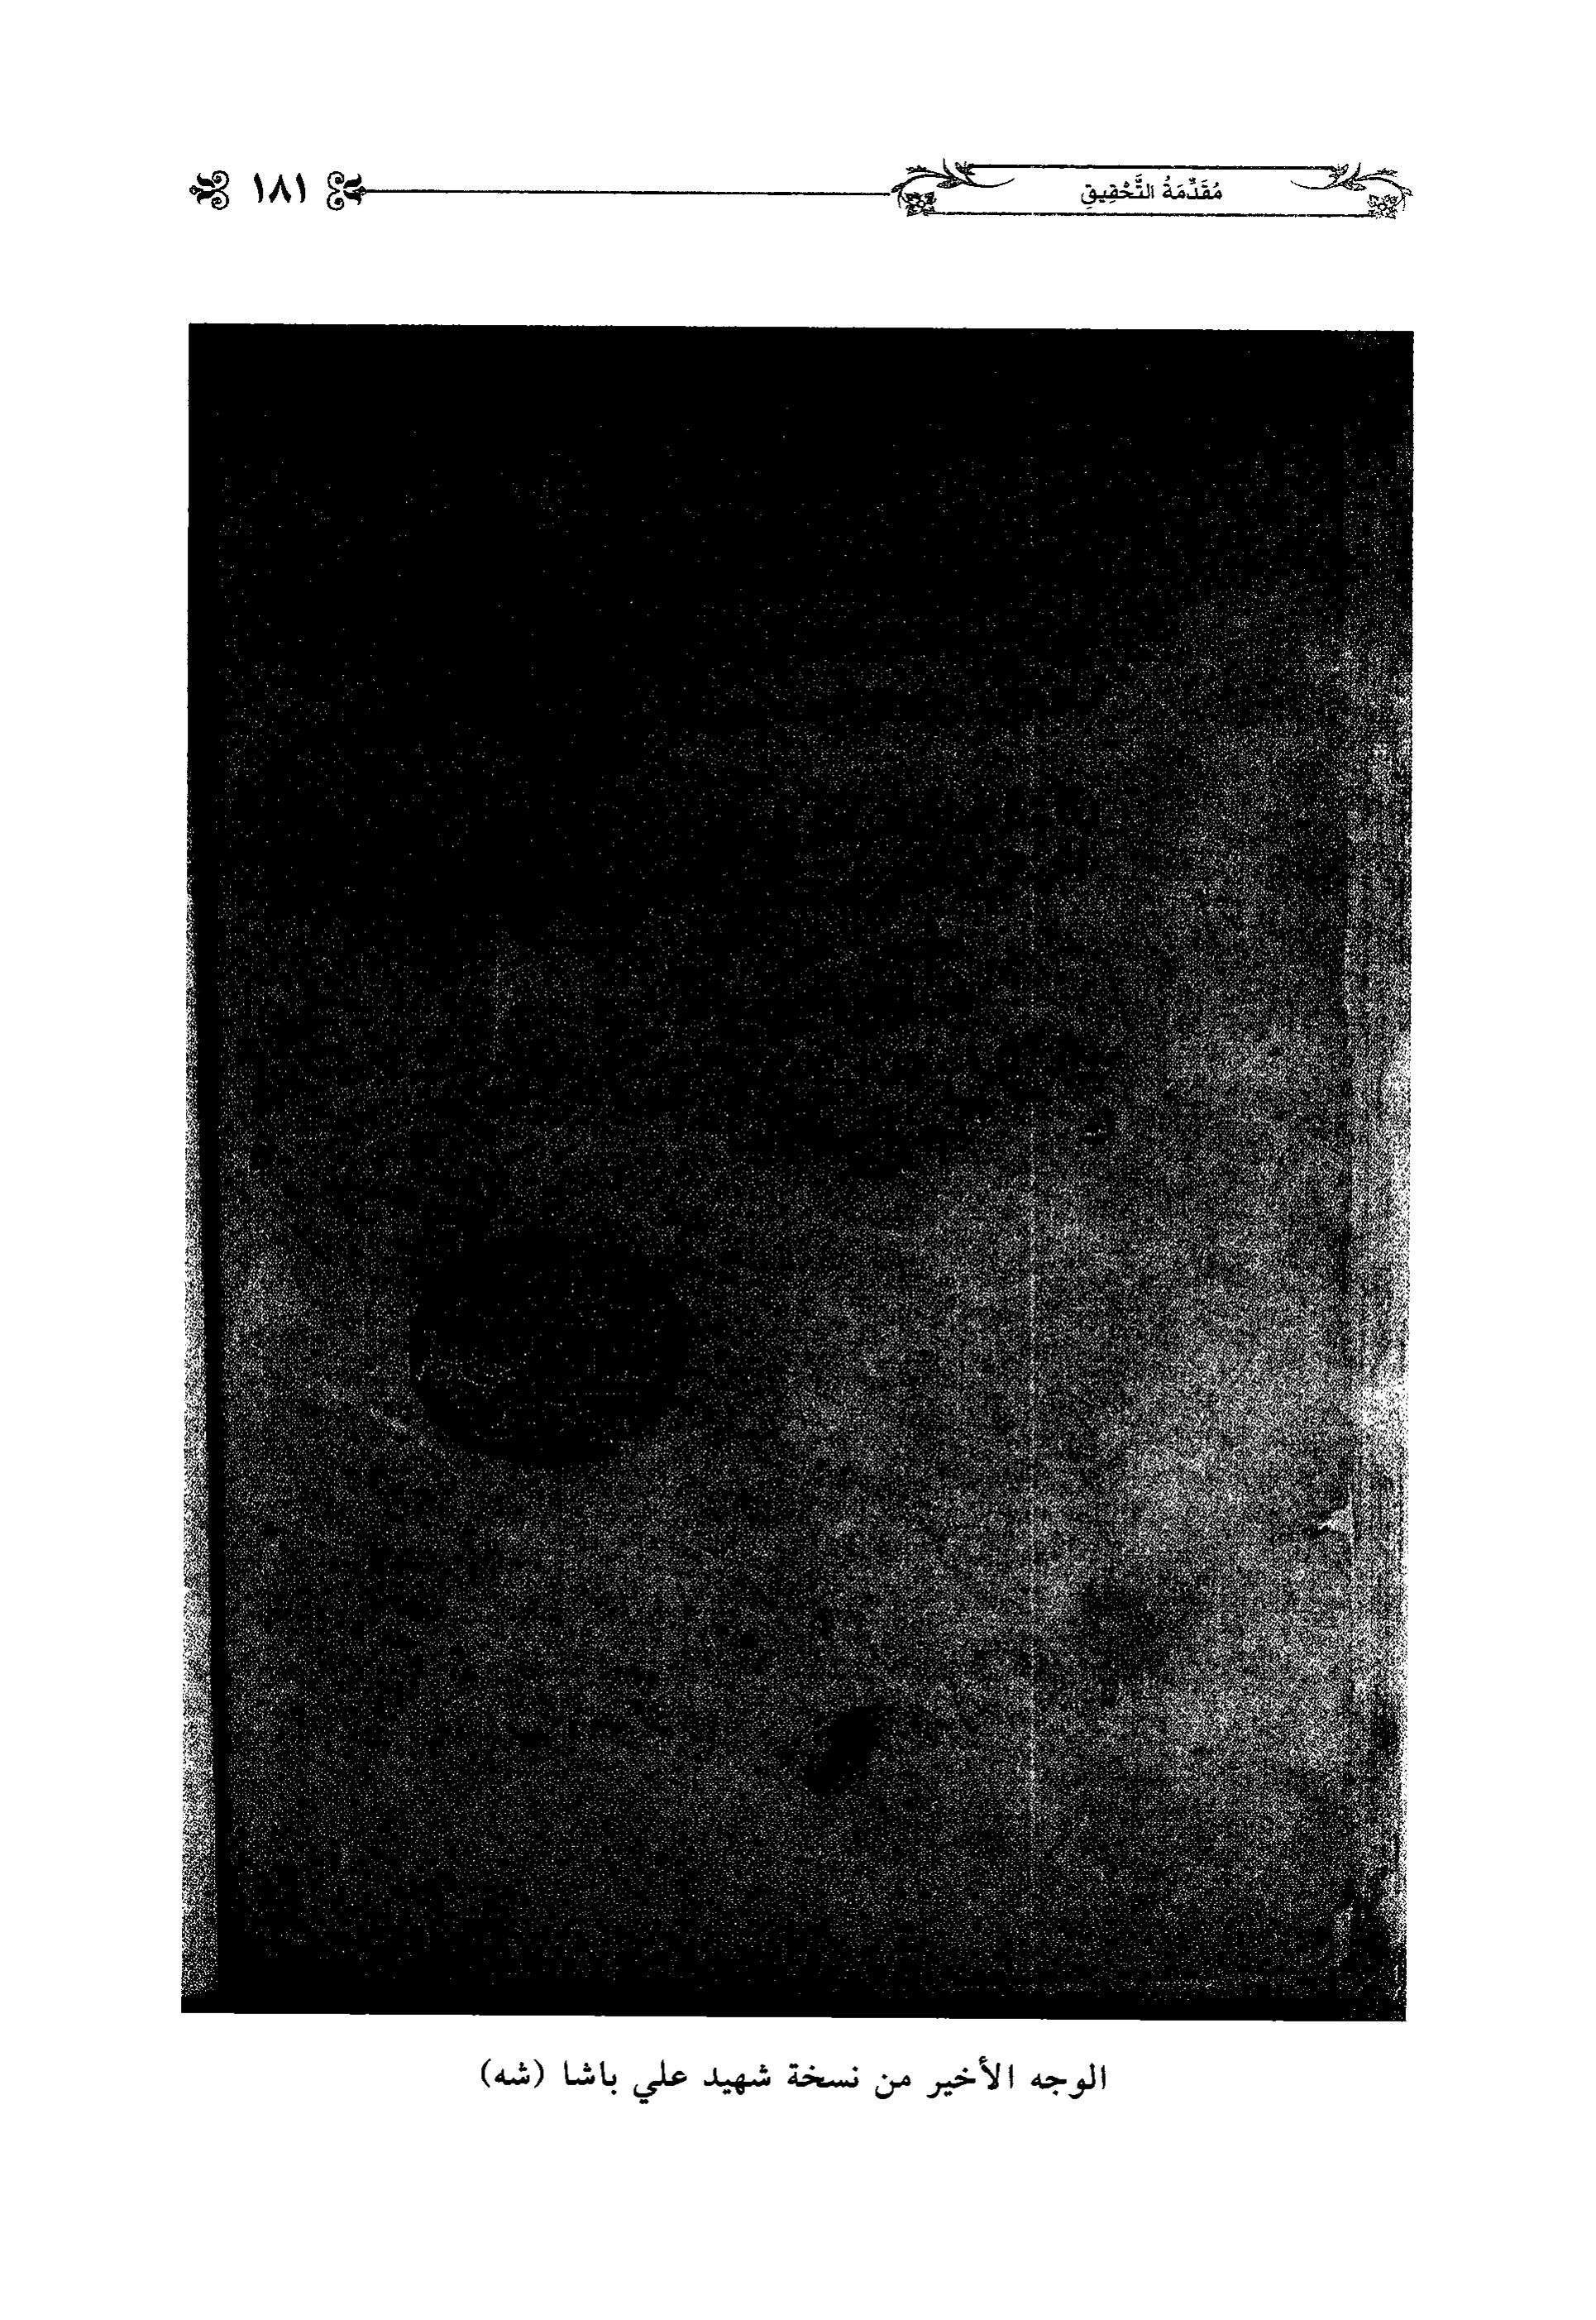 مُقَدِّمَةُ التَّحْقِيقِ
١٨١
الوجه الأخير من نسخة شهيد علي باشا (شه)